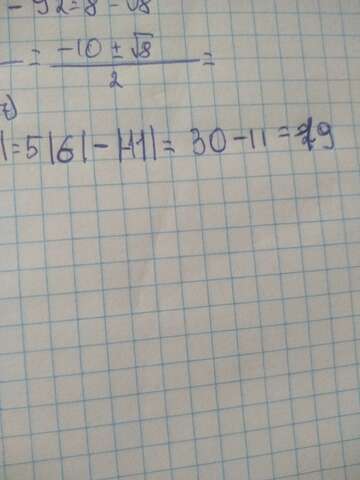 - 92 = 8 - √8
= (-10 ± √8) / 2 =
| = 5|6| - |-11| = 30 - 11 = 19